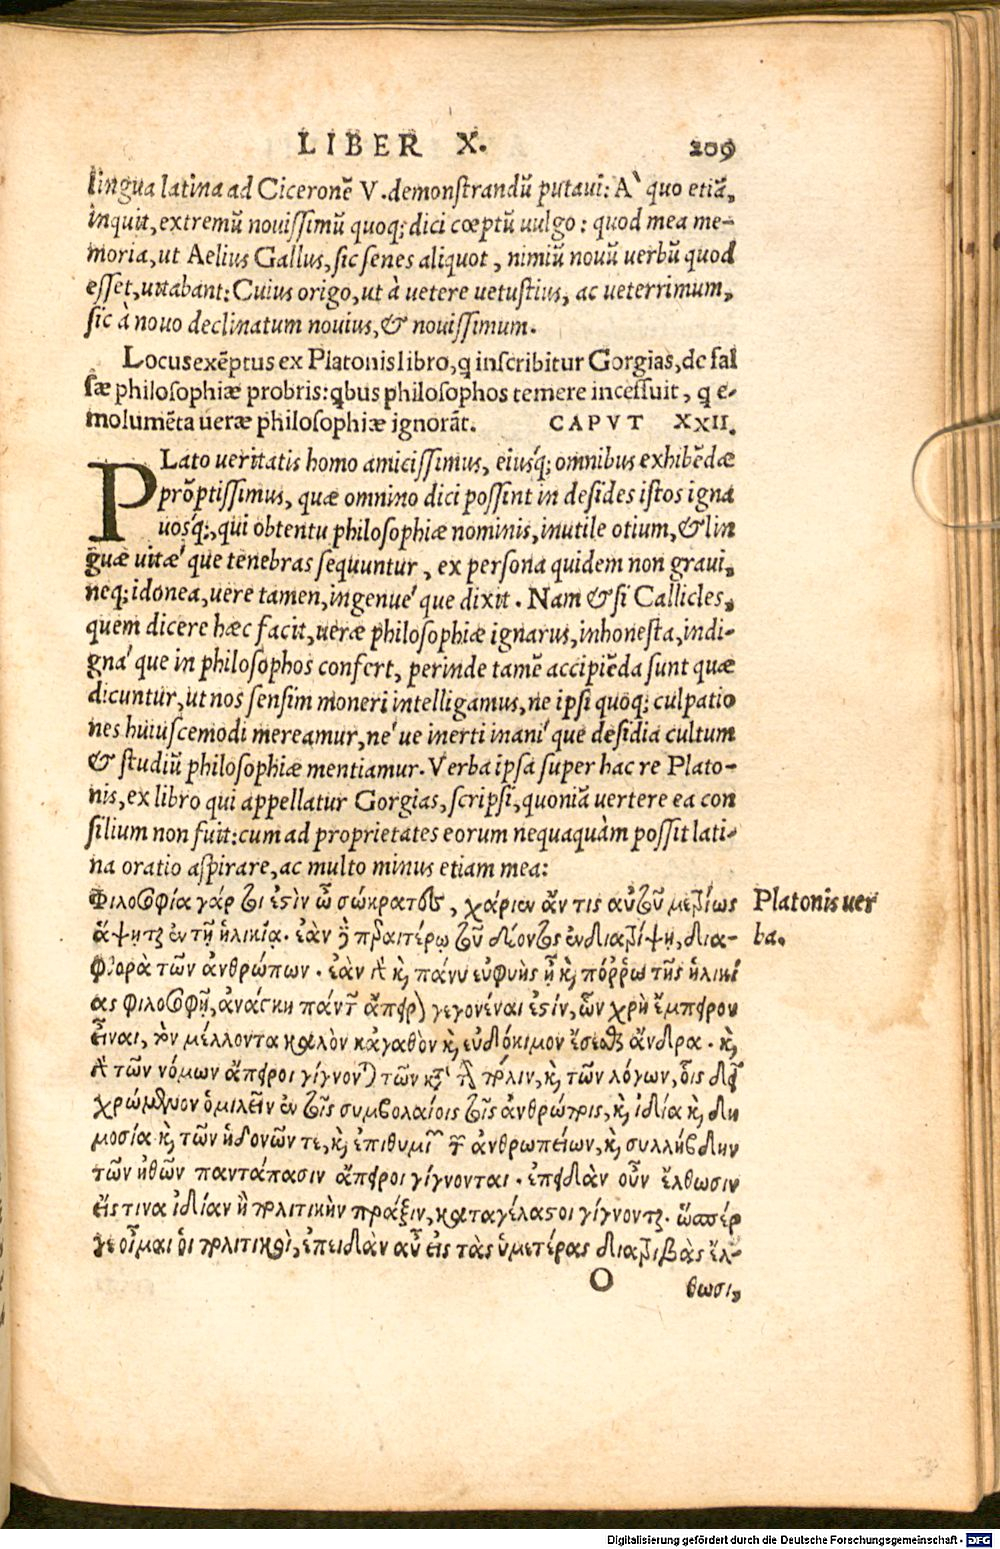 LIBER X. 209
lingua latina ad Ciceronē V. demonstrandū putaui: A` quo etiā,
inquit, extremū nouissimū quoq; dici cœptū uulgo: quod mea me-
moria, ut Aelius Gallus, sic senes aliquot, nimiū nouū uerbū quod
esset, uitabant: Cuius origo, ut à uetere uetustius, ac ueterrimum,
sic à nouo declinatum nouius, & nouissimum.
Locus exēptus ex Platonis libro, q inscribitur Gorgias, de fal
sæ philosophiæ probris: qbus philosophos temere incessuit, q e-
molumēta ueræ philosophiæ ignorāt. CAPVT XXII.
PLato ueritatis homo amicissimus, eiusq́; omnibus exhibēdæ
prōptissimus, quæ omnino dici possint in desides istos igna
uosq́;, qui obtentu philosophiæ nominis, inutile otium, & lin
guæ uitæ´que tenebras sequuntur, ex persona quidem non graui,
neq; idonea, uere tamen, ingenue´que dixit. Nam & si Callicles,
quem dicere hæc facit, ueræ philosophiæ ignarus, inhonesta, indi-
gna´que in philosophos confert, perinde tamē accipiēda sunt quæ
dicuntur, ut nos sensim moneri intelligamus, ne ipsi quoq; culpatio
nes huiuscemodi mereamur, ne´ue inerti inani´que desidia cultum
& studiū philosophiæ mentiamur. Verba ipsa super hac re Plato-
nis, ex libro qui appellatur Gorgias, scripsi, quoniā uertere ea con
silium non fuit: cum ad proprietates eorum nequaquàm possit lati-
na oratio aspirare, ac multo minus etiam mea:
Φιλοσοφία γάρ τοι ἐστὶν ὦ σώκρατες, χάριεν ἄν τις αὐτοῦ μετρίως
ἅψηται ἐν τῇ ἡλικίᾳ. ἐὰν δὲ περαιτέρω τοῦ δέοντος ἐνδιατρίψῃ, δια-
φθορὰ τῶν ἀνθρώπων. ἐὰν δὲ καὶ πάνυ εὐφυὴς ᾖ καὶ πόῤῥω τῆς ἡλικί
ας φιλοσοφῇ, ἀνάγκη πάντων ἄπειρον γεγονέναι ἐστίν, ὧν χρὴ ἔμπειρον
εἶναι, τὸν μέλλοντα καλὸν κἀγαθὸν καὶ εὐδόκιμον ἔσεσθαι ἄνδρα. καὶ
δὲ τῶν νόμων ἄπειροι γίγνονται τῶν κατὰ τὴν πόλιν, καὶ τῶν λόγων, οἷς δεῖ
χρώμενον ὁμιλεῖν ἐν τοῖς συμβολαίοις τοῖς ἀνθρώποις, καὶ ἰδίᾳ καὶ δη
μοσίᾳ καὶ τῶν ἡδονῶν τε, καὶ ἐπιθυμιῶν τῶν ἀνθρωπείων, καὶ συλλήβδην
τῶν ἠθῶν παντάπασιν ἄπειροι γίγνονται. ἐπειδὰν οὖν ἔλθωσιν
εἴς τινα ἰδίαν ἢ πολιτικὴν πράξιν, καταγέλαστοι γίγνονται. ὥσπερ
γε οἶμαι οἱ πολιτικοὶ, ἐπειδὰν αὖ εἰς τὰς ὑμετέρας διατριβὰς ἔλ-
O θωσι,
Platonis uer
ba.
Digitalisierung gefördert durch die Deutsche Forschungsgemeinschaft - DFG